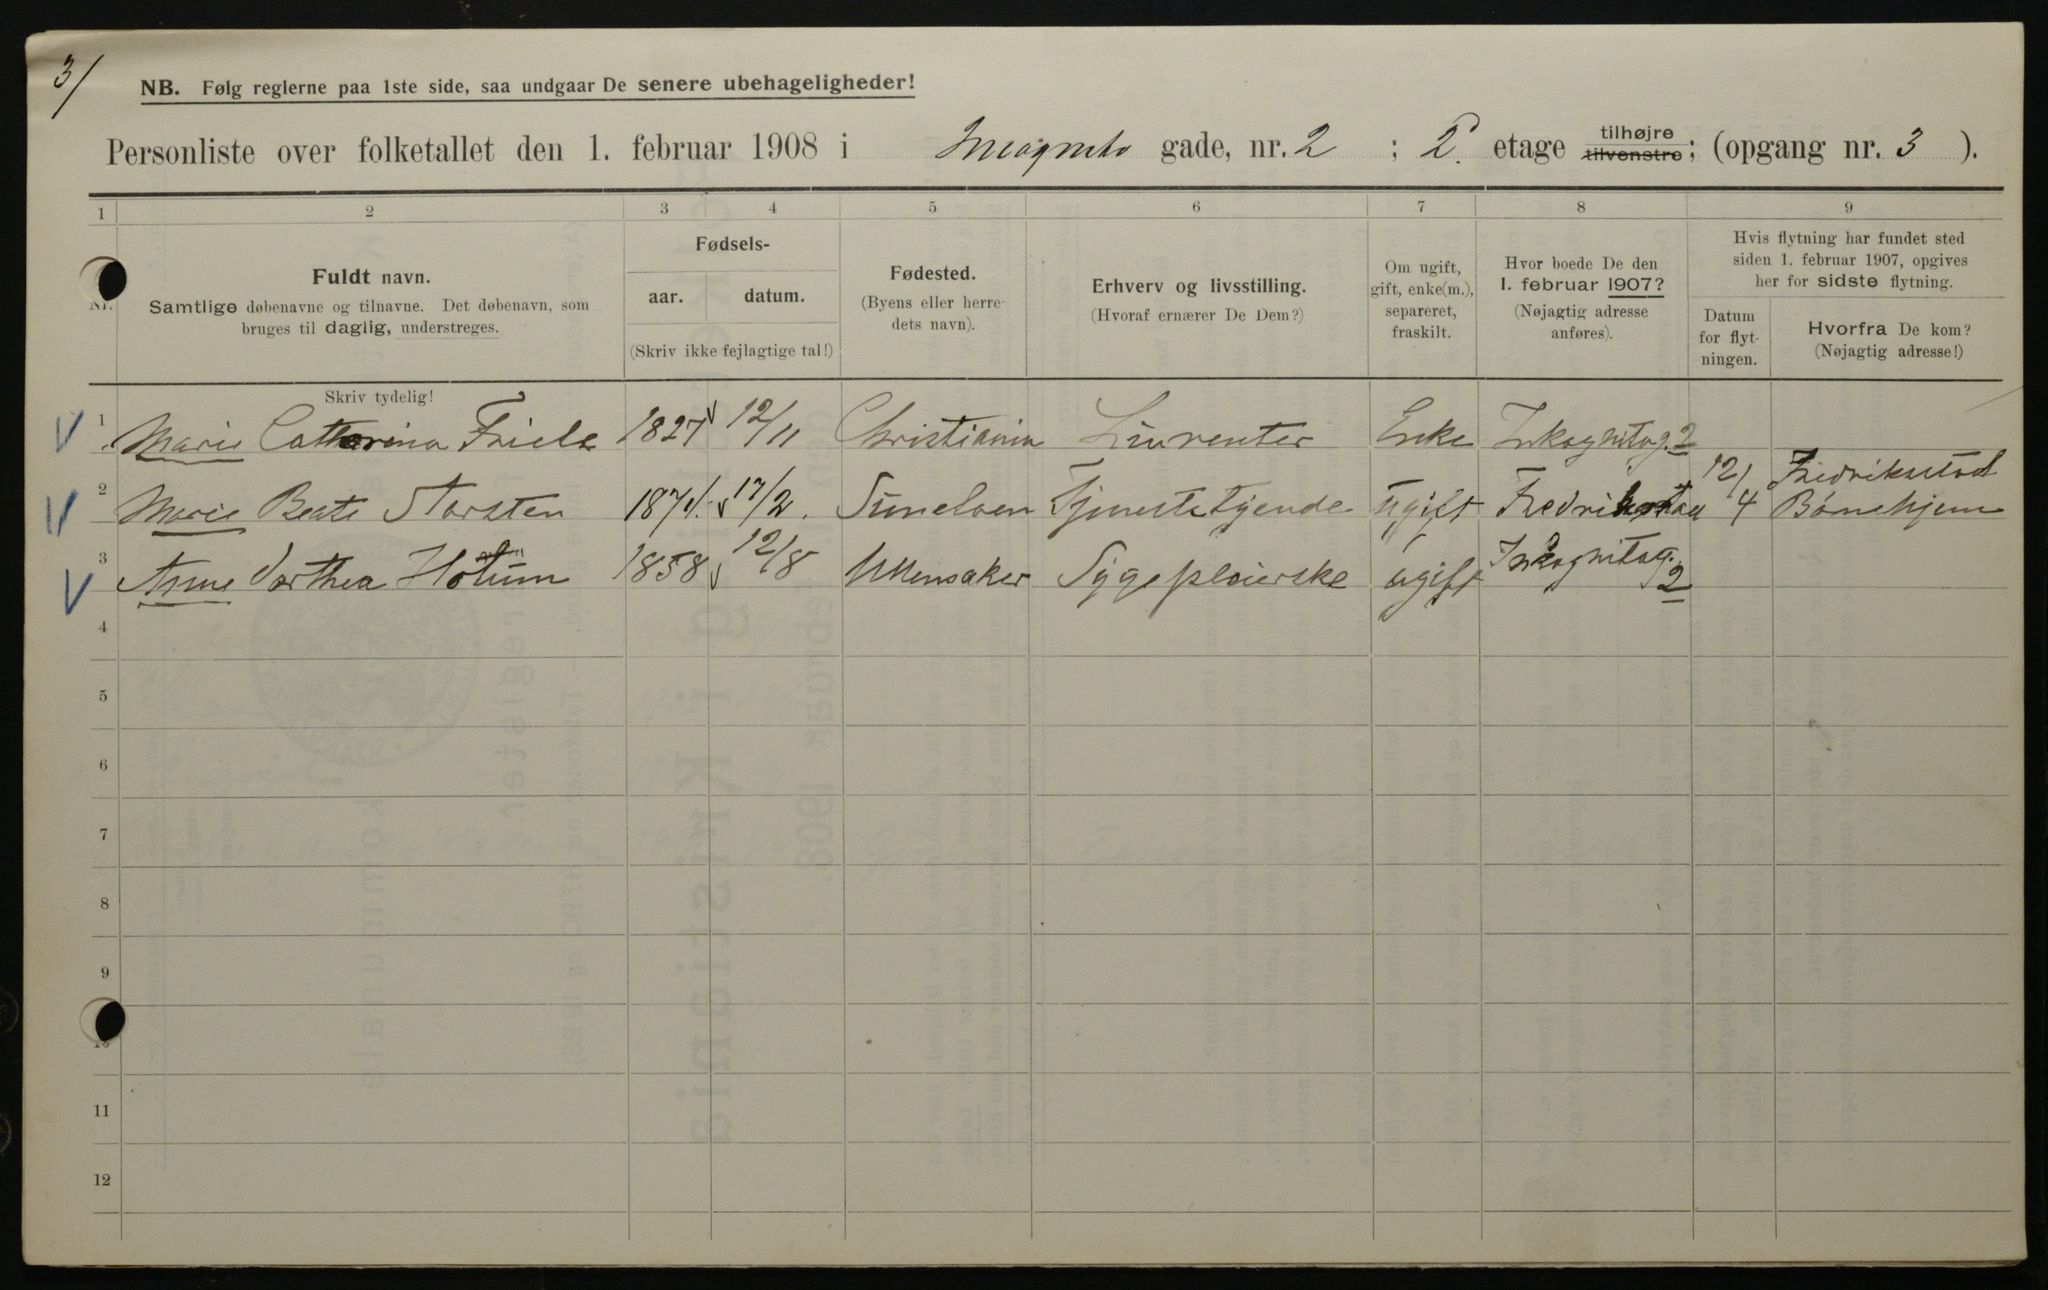 3/
NB. Følg reglerne paa 1ste side, saa undgaar De senere ubehageligheder!
Personliste over folketallet den 1. februar 1908 i Incognito gade, nr. 2 ; 2. etage tilhøjre tilvenstre; (opgang nr. 3 ).
1 2 3 4 5 6 7 8 9
Nr.
Fuldt navn.
Samtlige døbenavne og tilnavne. Det døbenavn, som
bruges til daglig, understreges.
Skriv tydelig!
Fødsels-
aar. datum.
(Skriv ikke fejlagtige tal!)
Fødested.
(Byens eller herre-
dets navn).
Erhverv og livsstilling.
(Hvoraf ernærer De Dem?)
Om ugift,
gift, enke(m.),
separeret,
fraskilt.
Hvor boede De den
1. februar 1907?
(Nøjagtig adresse
anføres).
Hvis flytning har fundet sted
siden 1. februar 1907, opgives
her for sidste flytning.
Datum
for flyt-
ningen.
Hvorfra De kom?
(Nøjagtig adresse!)
1 Marie Catharina Friele 1827 12/11 Christiania Livrenter Enke Inkognitog. 2
2 Marie Beate Torsten 187 17/2. Tjenestetyende ugift Fredrikstad 12/4 Fredrikstad Børnehjem
3 Anne Dorthea Hotum 1858 12/8 Ullensaker Sygepleierske ugift Inkognitog. 2
4
5
6
7
8
9
10
11
12